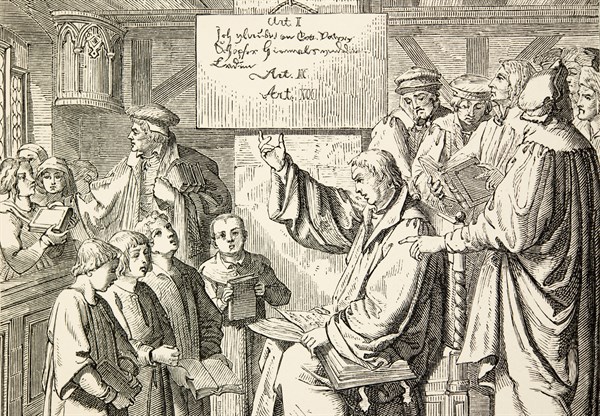 Art I
Ich glaube an Gott. Vater
Schöpfer Himmels und
Erden
Art. II
Art. III